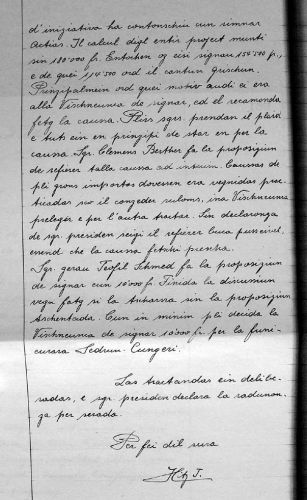 d'iniziativa ha contonschiu cun simnar
actias. Il calcul digl entir project munti
sin 180'000 fr. Entochen oz ein signau 154'500 fr.,
e de quei 114'500 ord il cantun Grischun.
Principalmein ord quei motiv audi ei era
alla Vischneunca de signar, ed el recamonda
fetg la caussa. Plirs sgrs. prendan il plaid
e tuts ein en principi de star en per la
caussa. Sgr. Clemens Berther fa la proposiziun
de referer talla caussa ad interim. Caussas de
pli grond importos dovessen era vegnidas prac-
ticadas sco il conzeder uclons, ina Vischneunca
preleger e per l'autra tractar. Sin declaronza
de sgr. presiden seigi il referer buca pusseivel,
essend che la caussa fetschi prescha.
Sgr. gerau Teofil Schmed fa la proposiziun
de signar cun 10'000 fr. Finida la discussiun
vegn fatg si la tuttarssa sin la proposiziun
Cun in minim pli decida la
Vischneunca de signar 10'000 fr. per la funi-
culara Sedrun-Cungieri.
Las tractandas ein delibe-
radas, e sgr. presiden declara la radunon-
za per serada.
Per fei dil sura